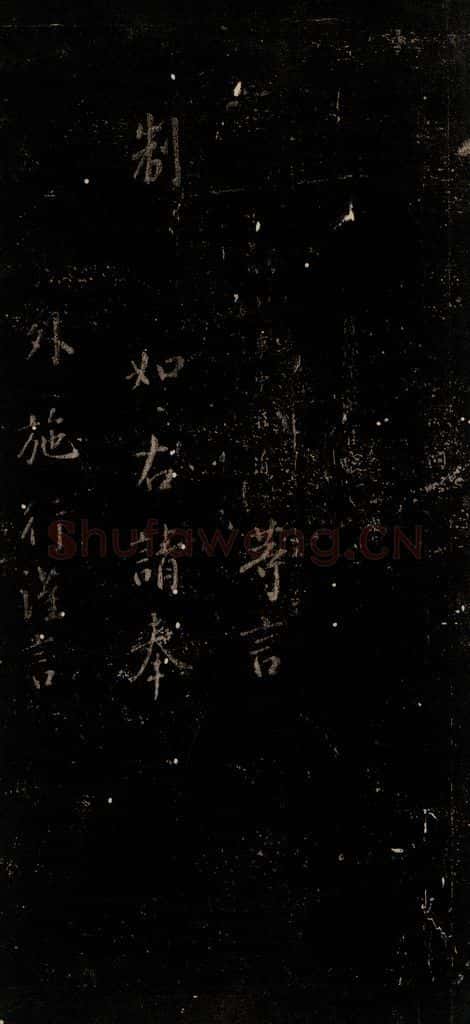 等言
制
如右請奉
外施行謹言
Shufawang.CN